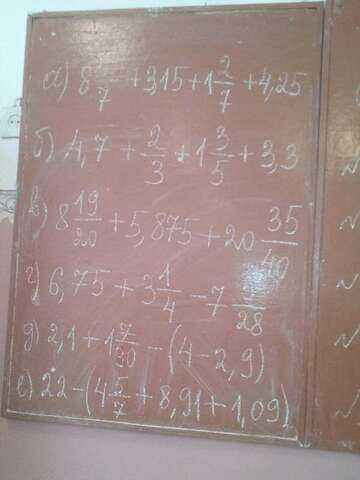 а) 8 —/7 + 3,15 + 1 2/7 + 4,25
б) 4,7 + 2/3 + 1 3/5 + 3,3
в) 8 19/20 + 5,875 + 20 35/40
г) 6,75 + 3 1/4 - 7 —/28
д) 2,1 + 1 7/30 - (4 - 2,9)
е) 22 - (4 5/7 + 8,91 + 1,09)